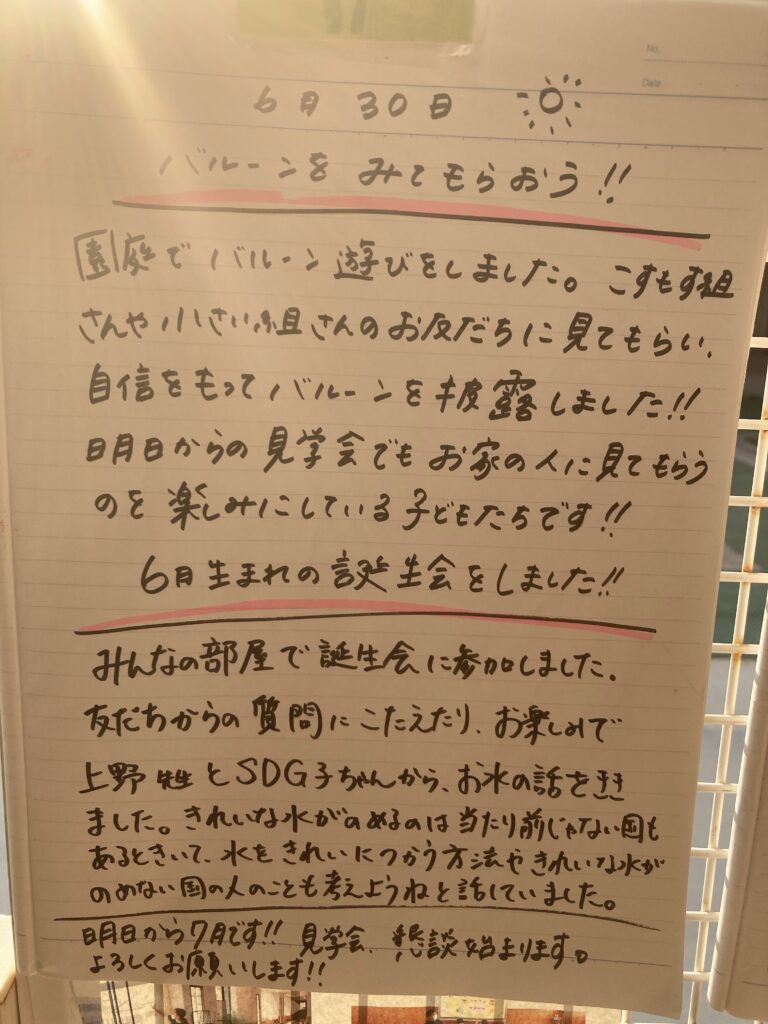 No.
Date
6月30日
バルーンを みてもらおう!!
園庭で バルーン遊びをしました。こすもす組
さんや小さい組さんのお友だちに見てもらい、
自信をもってバルーンを披露しました!!
明日からの見学会でもお家の人に見てもらう
のを楽しみにしている子どもたちです!!
6月生まれの誕生会をしました!!
みんなの部屋で誕生会に参加しました。
友だちからの質問にこたえたり、お楽しみで
上野先生とSDG子ちゃんから、お水の話をきき
ました。きれいな水がのめるのは当たり前じゃない国も
あるときいて、水をきれいにつかう方法やきれいな水が
のめない国の人のことも考えようねと話していました。
明日から7月です!! 見学会、懇談始まります。
よろしくお願いします!!